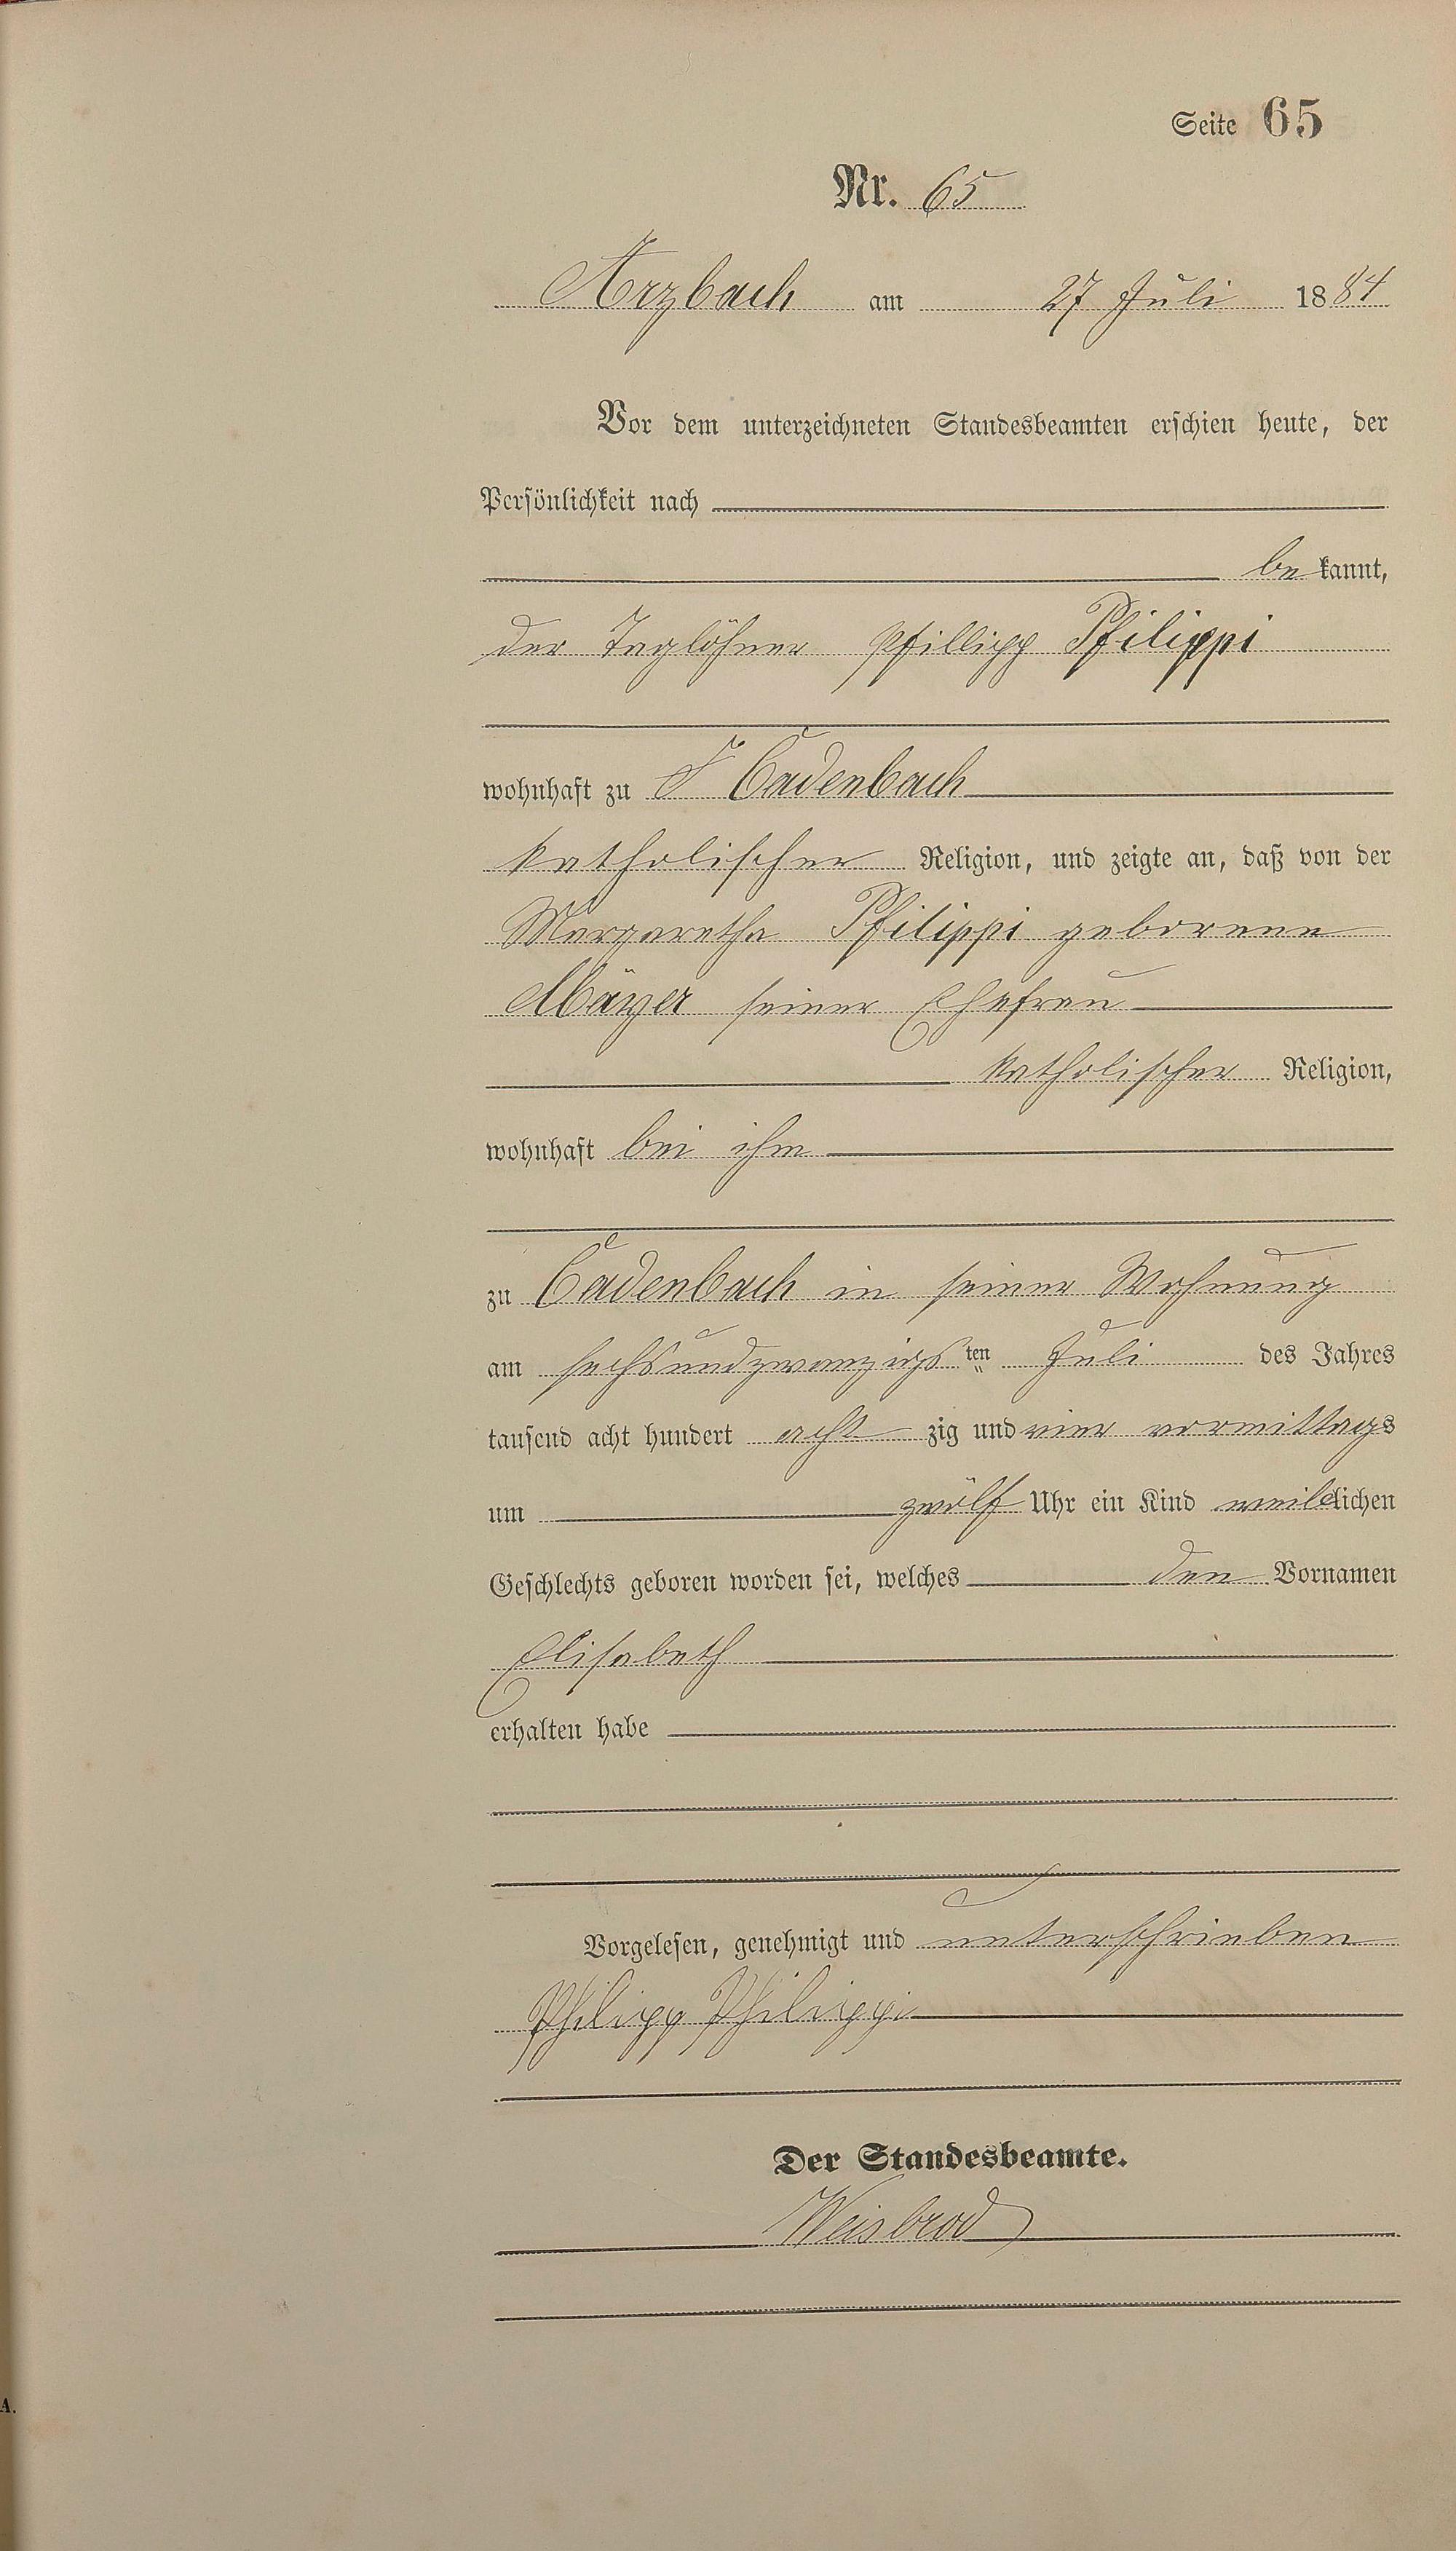 Seite 65
Nr. 65
Arzbach am 27 Juli 1884
Vor dem unterzeichneten Standesbeamten erschien heute, der
Persönlichkeit nach
be kannt,
der Taglöhner Phillipp Philippi
wohnhaft zu Cadenbach
katholischer Religion, und zeigte an, daß von der
Margaretha Philippi geborene
Mäyer seiner Ehefrau
katholischer Religion,
wohnhaft bei ihm
zu Cadenbach in seiner Wohnung
am sechsundzwanzigsten Juli des Jahres
tausend acht hundert acht zig und vier vormittags
um zwölf Uhr ein Kind weiblichen
Geschlechts geboren worden sei, welches den Vornamen
Elisabeth
erhalten habe
Vorgelesen, genehmigt und unterschrieben
Philipp Philippi
Der Standesbeamte.
Weisbrod
A.